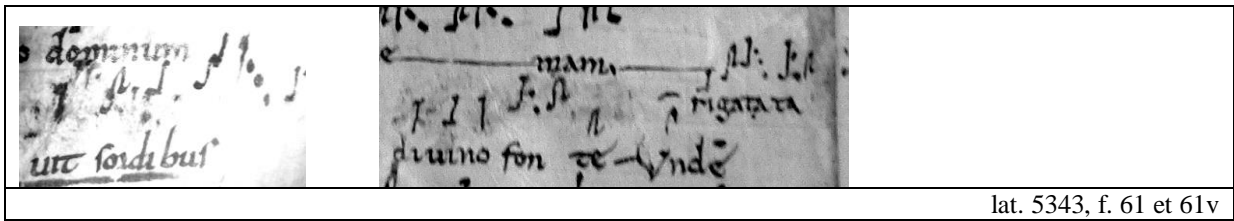 uit sordibus
e mam.
rigata ta
diuino fon te Vnde
lat. 5343, f. 61 et 61v